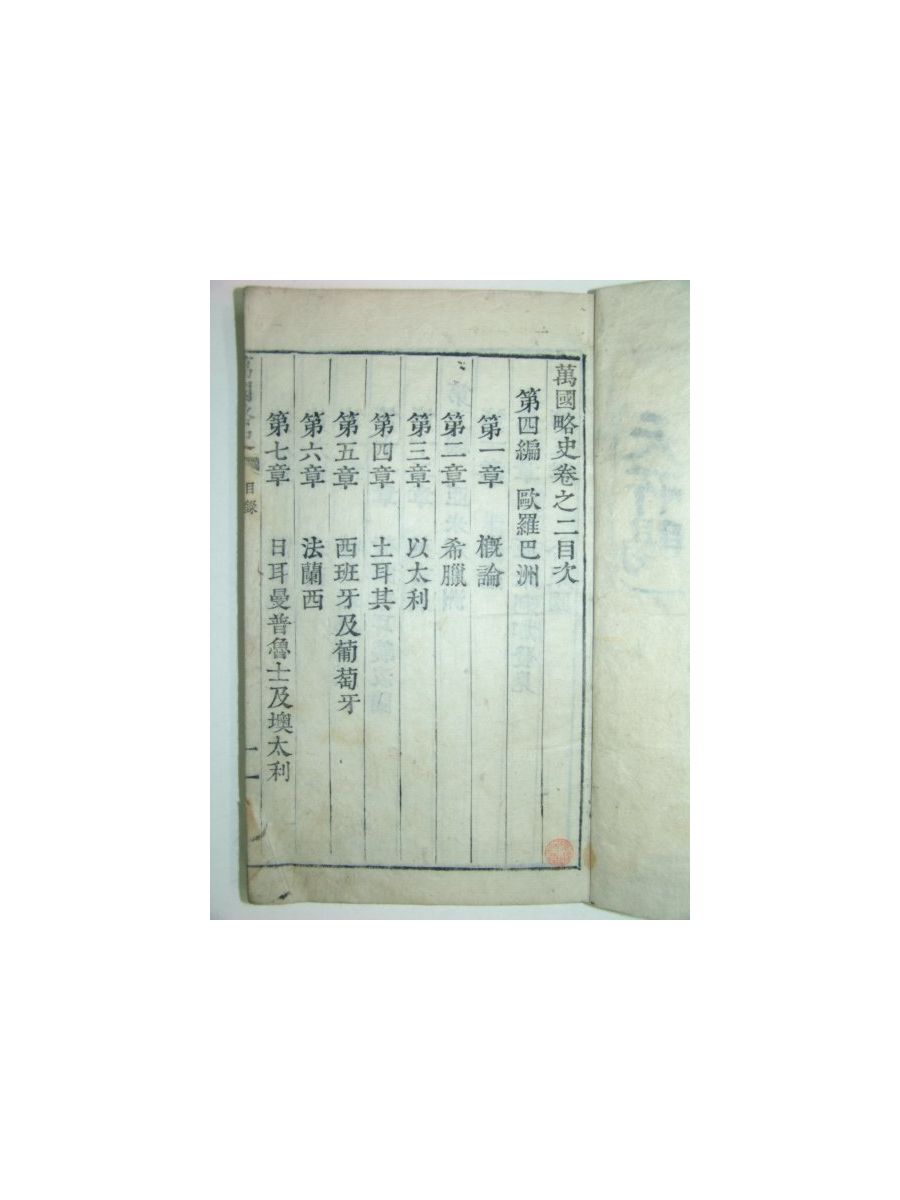 萬國略史卷之二目次
第四編 歐羅巴洲
第一章 槪論
第二章 希臘
第三章 以太利
第四章 土耳其
第五章 西班牙及葡萄牙
第六章 法蘭西
第七章 日耳曼普魯士及墺太利
目錄